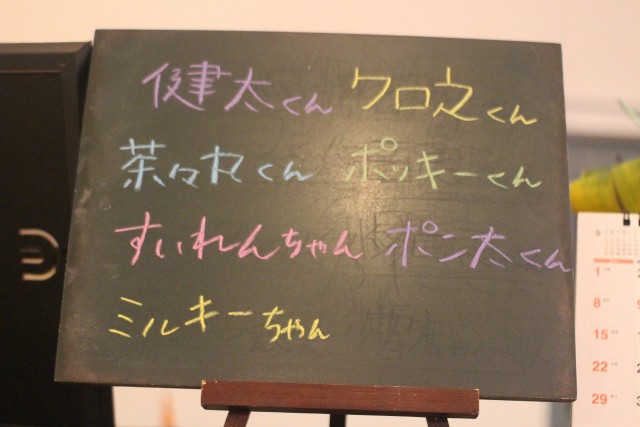 健太くん クロ之くん
茶々丸くん ポッキーくん
すいれんちゃん ポン太くん
ミルキーちゃん
9
1
8
15
22
29